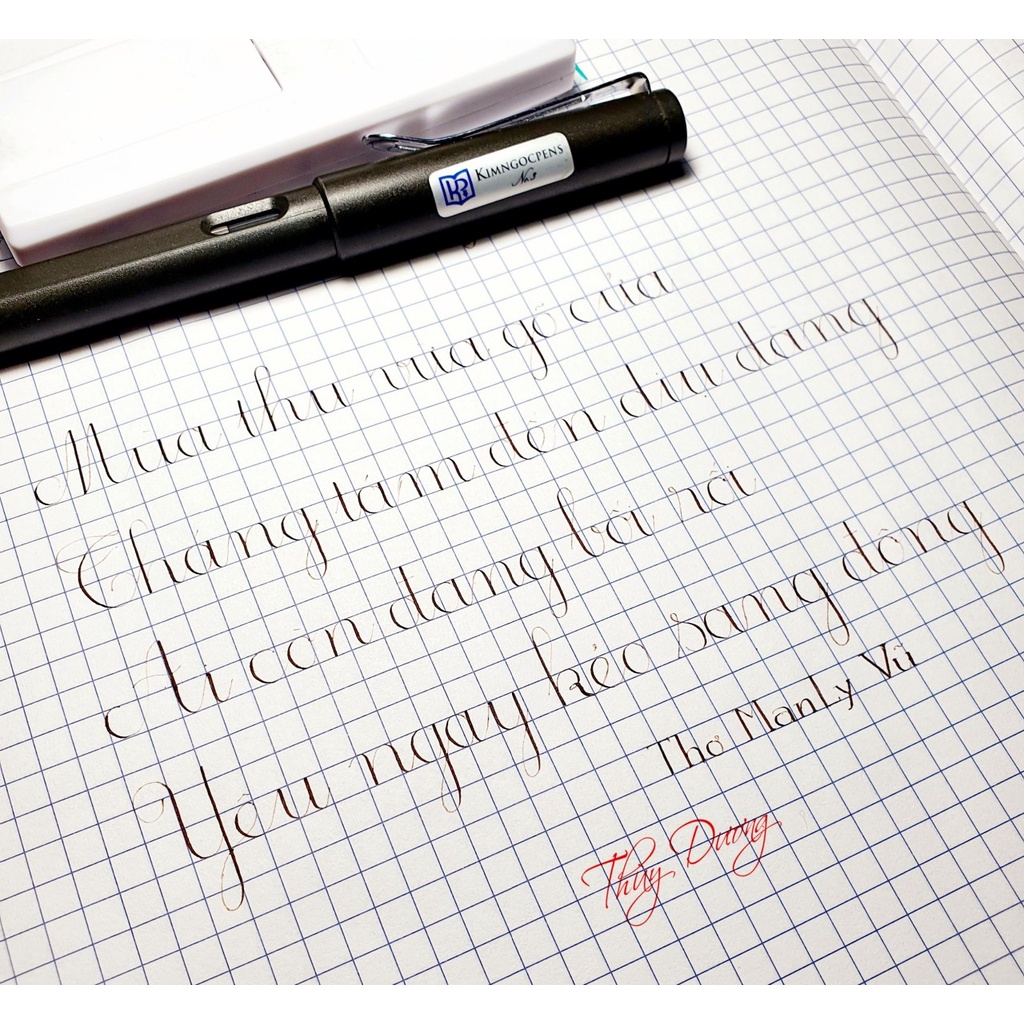 KIMNGOCPENS
No.3
Mùa thu vừa gõ cửa
Tháng tám đến dịu dàng
Ai còn đang bối rối
Yêu ngay kẻo sang đông
Thơ ManLy Vũ
Thùy Dương